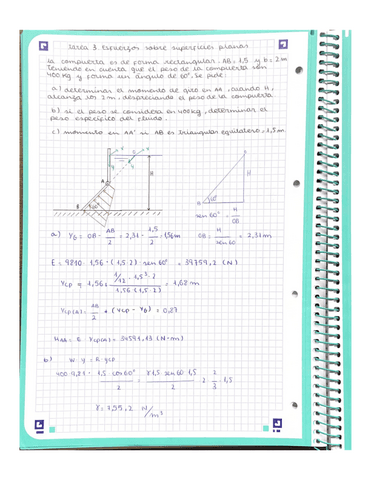 tarea 3. Esfuerzos sobre superficies planas
La compuerta es de forma rectangular. AB, 1,5 y b = 2m
Teniendo en cuenta que el peso de la compuerta son
400 kg y forma un ángulo de 60°. Se pide:
a) determinar el momento de giro en AA', cuando H,
alcanza los 2m. despreciando el peso de la compuerta.
b) si el peso se considera en 400kg, determinar el
peso específico del fluido.
c) momento en AA' si AB es triangular equilátero, 1,5m.
H
A
B
60°
H
A
60°
B
sen 60° = H / OB
a) Y₀ = OB - AB/2 = 2,31 - 1,5/2 = 1,56m
OB = H / sen 60 = 2,31m
E = 9810 · 1,56 · (1,5·2) · sen 60° = 39759,2 (N)
Ycp = 1,56 + 1/12 · 1,5³ · 2 / 1,56 (1,5·2) = 1,68 m
Ycp(A) = AB/2 + (Ycp - Y₀) = 0,87
MAA = E · Ycp(A) = 34591,13 (N·m)
b) W · y = E · ycp
400 · 9,81 · 1,5 · cos 60° / 2 = γ 1,5 sen 60 · 1,5 / 2 · 2 · 2/3 · 1,5
γ = 7,55,2 N/m³